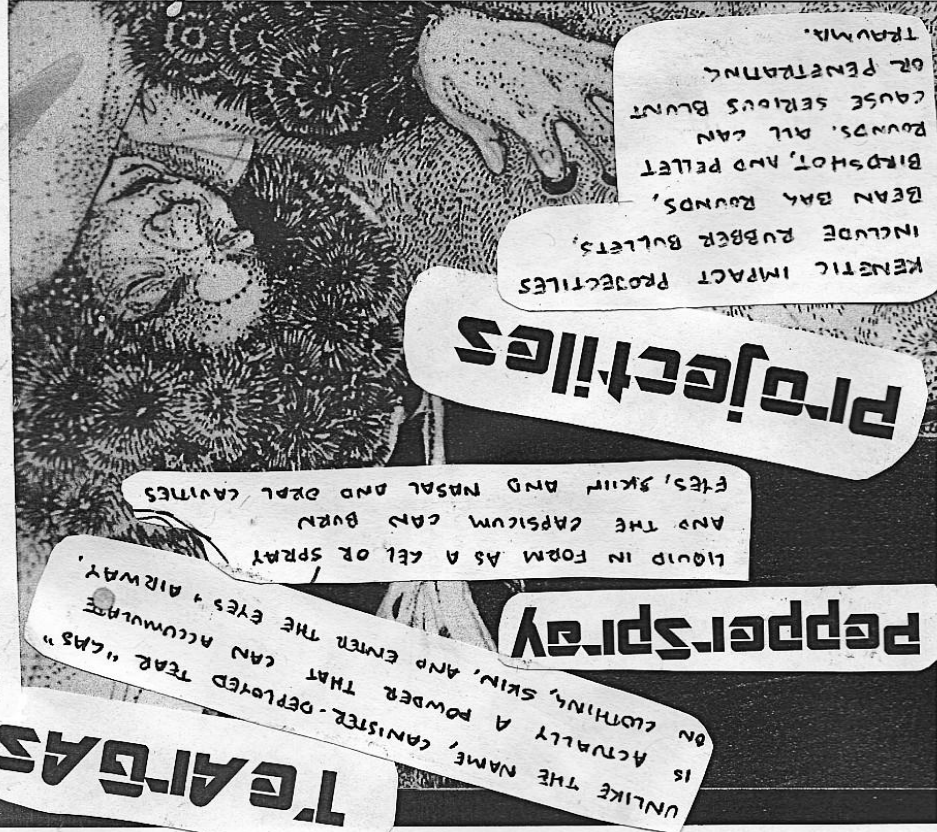 TEARGAS
UNLIKE THE NAME, CANISTER-DEPLOYED TEAR "GAS"
IS ACTUALLY A POWDER THAT CAN ACCUMULATE
ON CLOTHING, SKIN, AND ENTER THE EYES + AIRWAY.
PepperSpray
LIQUID IN FORM AS A GEL OR SPRAY
AND THE CAPSICUM CAN BURN
EYES, SKIIN AND NASAL AND ORAL CAVITIES
Projectiles
KENETIC IMPACT PROJECTILES
INCLUDE RUBBER BULLETS,
BEAN BAG ROUNDS,
BIRDSHOT, AND PELLET
ROUNDS. ALL CAN
CAUSE SERIOUS BLUNT
OR PENETRATING
TRAUMA.